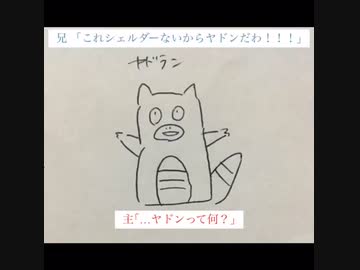 兄 「これシェルダーないからヤドンだわ！！！」
ヤドラン
主「...ヤドンって何？」